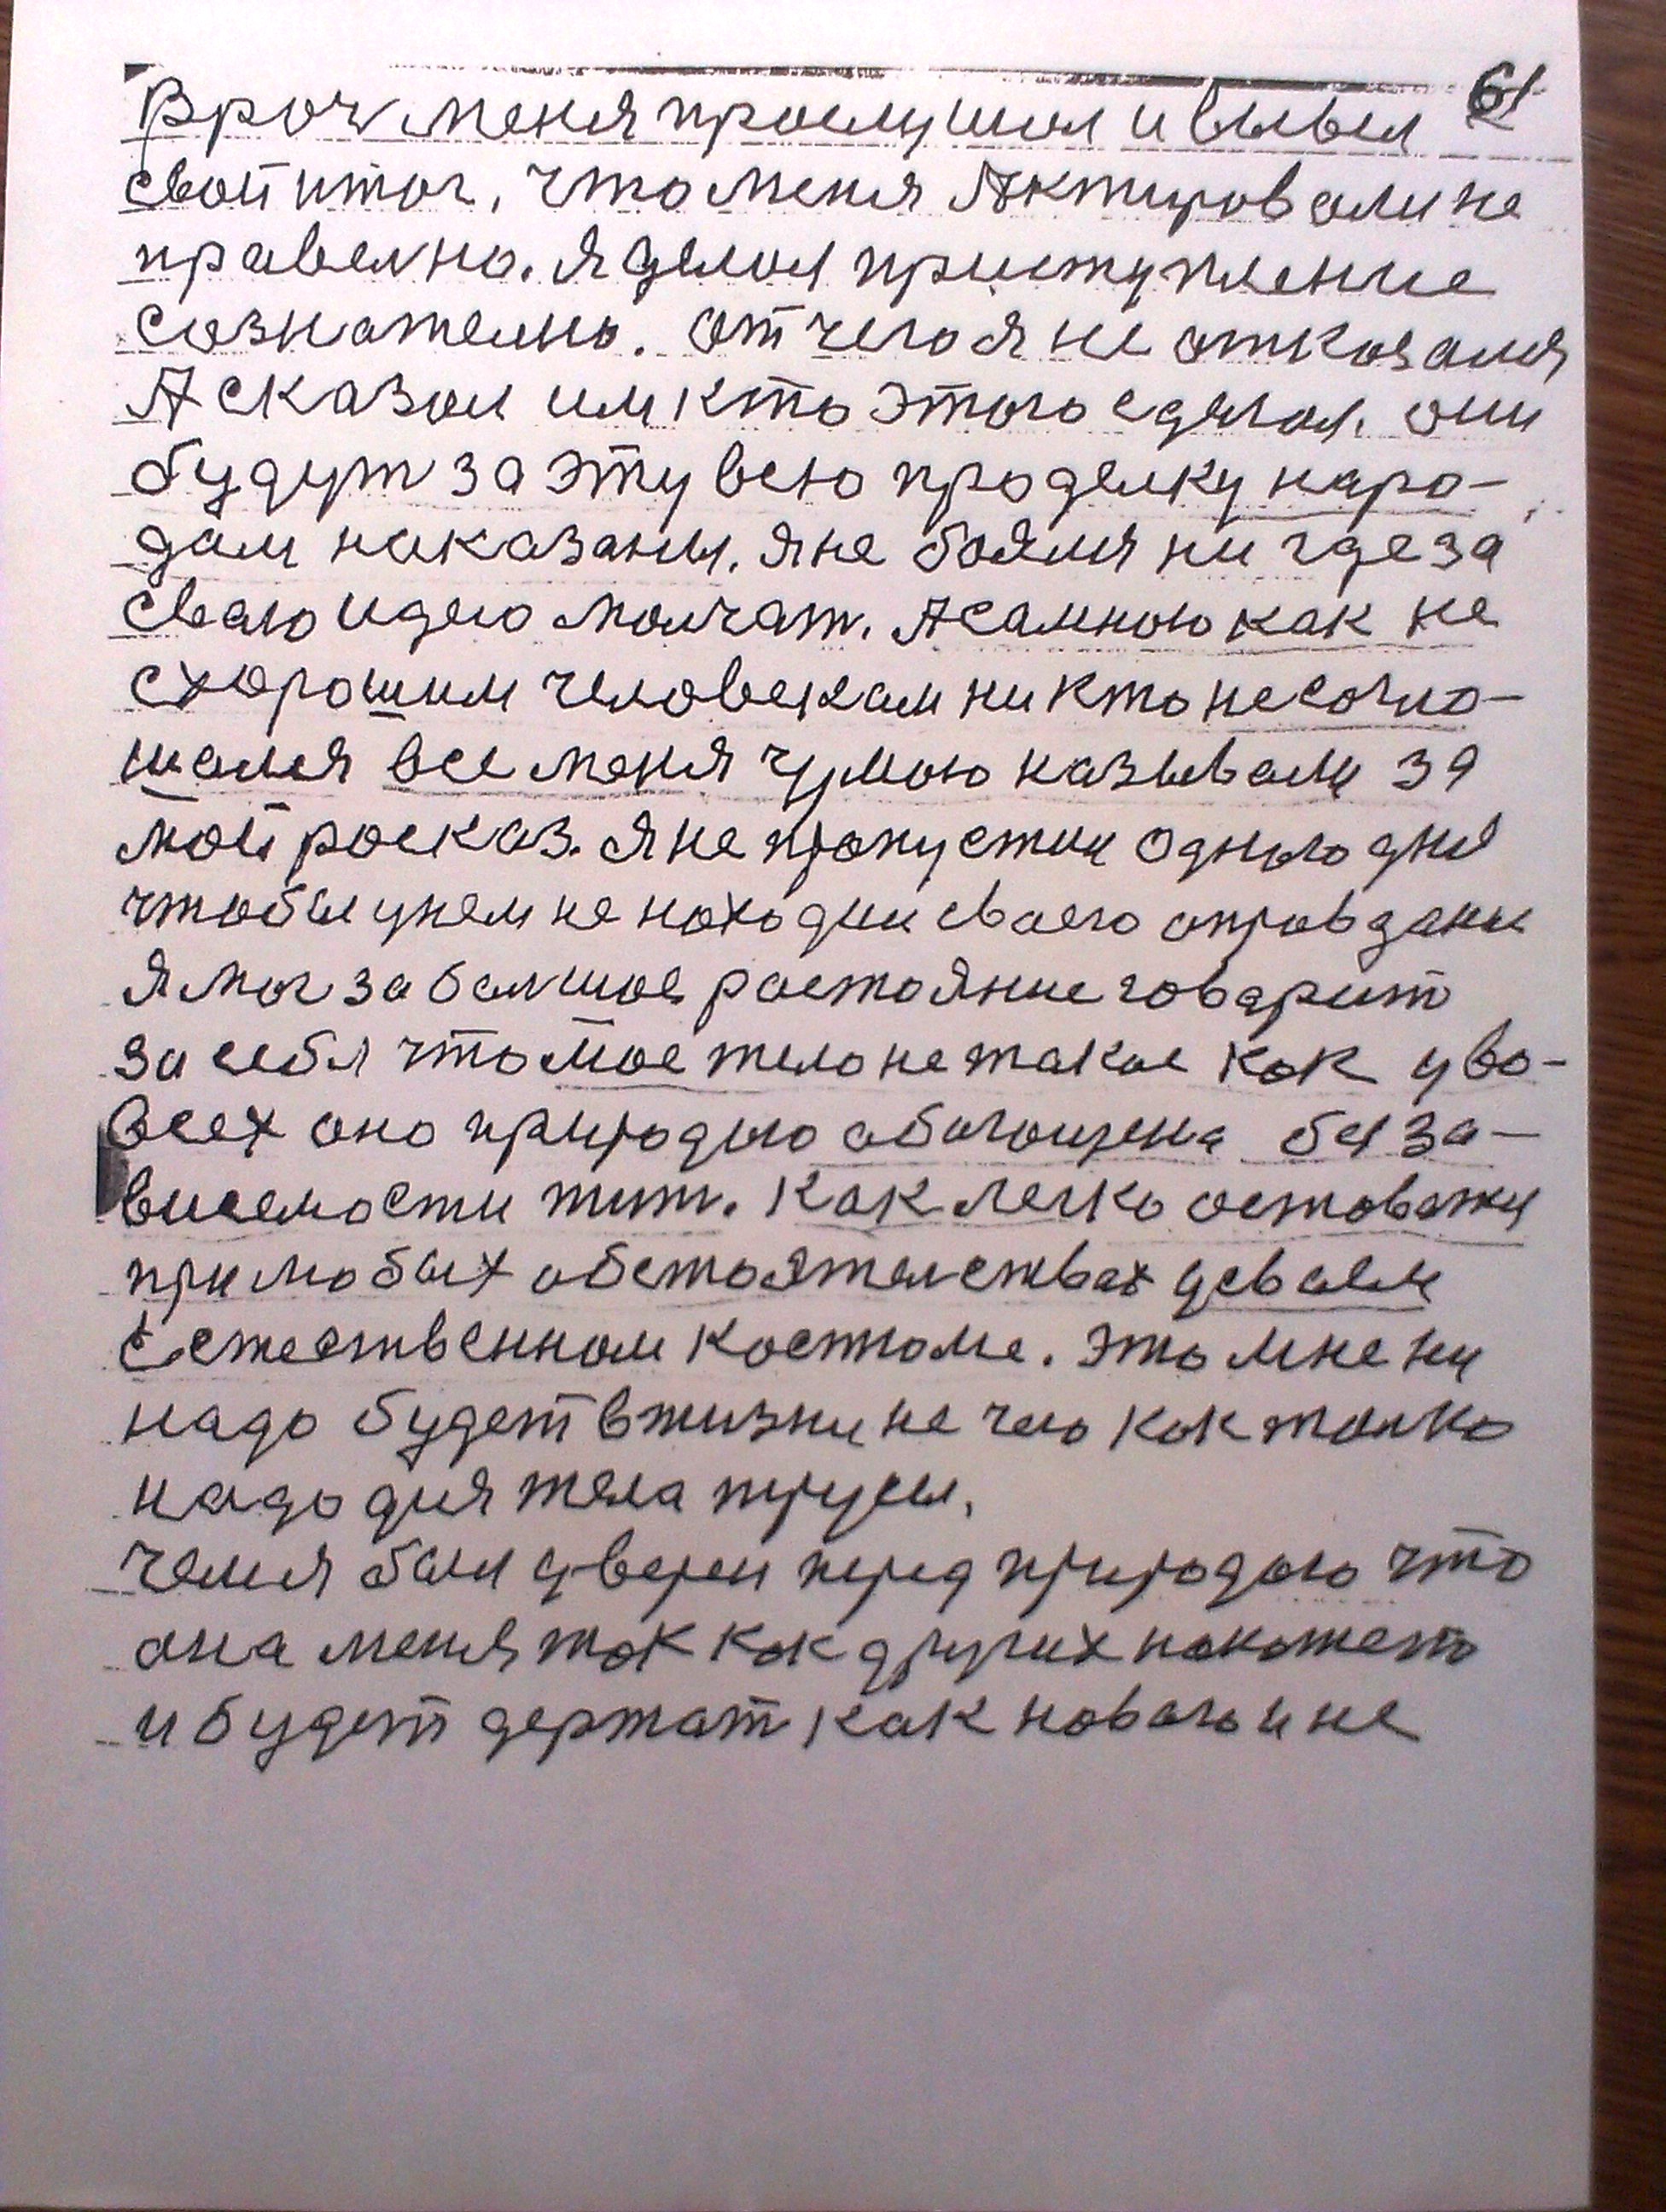 61
Врач меня прослушал и вывел
свой итог, что меня Актировали не
правелно. я делал приступление
сознателно. от чего я не отказался
А сказал им кто этого сделал. они
будут за эту всю проделку наро-
дам наказаны. я не боялся ни где за
сваю идею молчат. А самною как не
схорошим человекам ни кто не согло-
шался все меня чумою называли за
мой росказ. Я не пропустил одного дня
чтобы унем не находил своего оправдание
Я мог за балшое растояние говарит
за себя что мое тело не такое как уво-
всех оно природою обогощена без за-
висемости жит. Как легко оставатся
при любых обстоятелствах
Естественном костюме. это мне ни
надо будет в жизни не чего как толко
надо для тела трусы.
чем я был уверен перед природою что
она меня так как других накажет
и будет держат как новаго и не